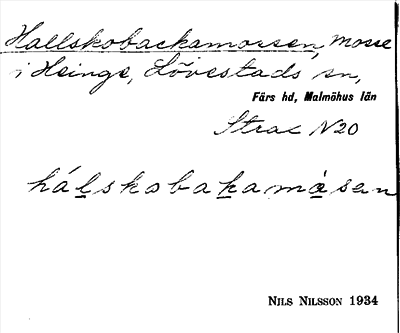 Hallskobackamossen, mosse
i Heinge, Lövestads sn,
Färs hd, Malmöhus län
Strac N20
hálskobakamȧsen
NILS NILSSON 1934